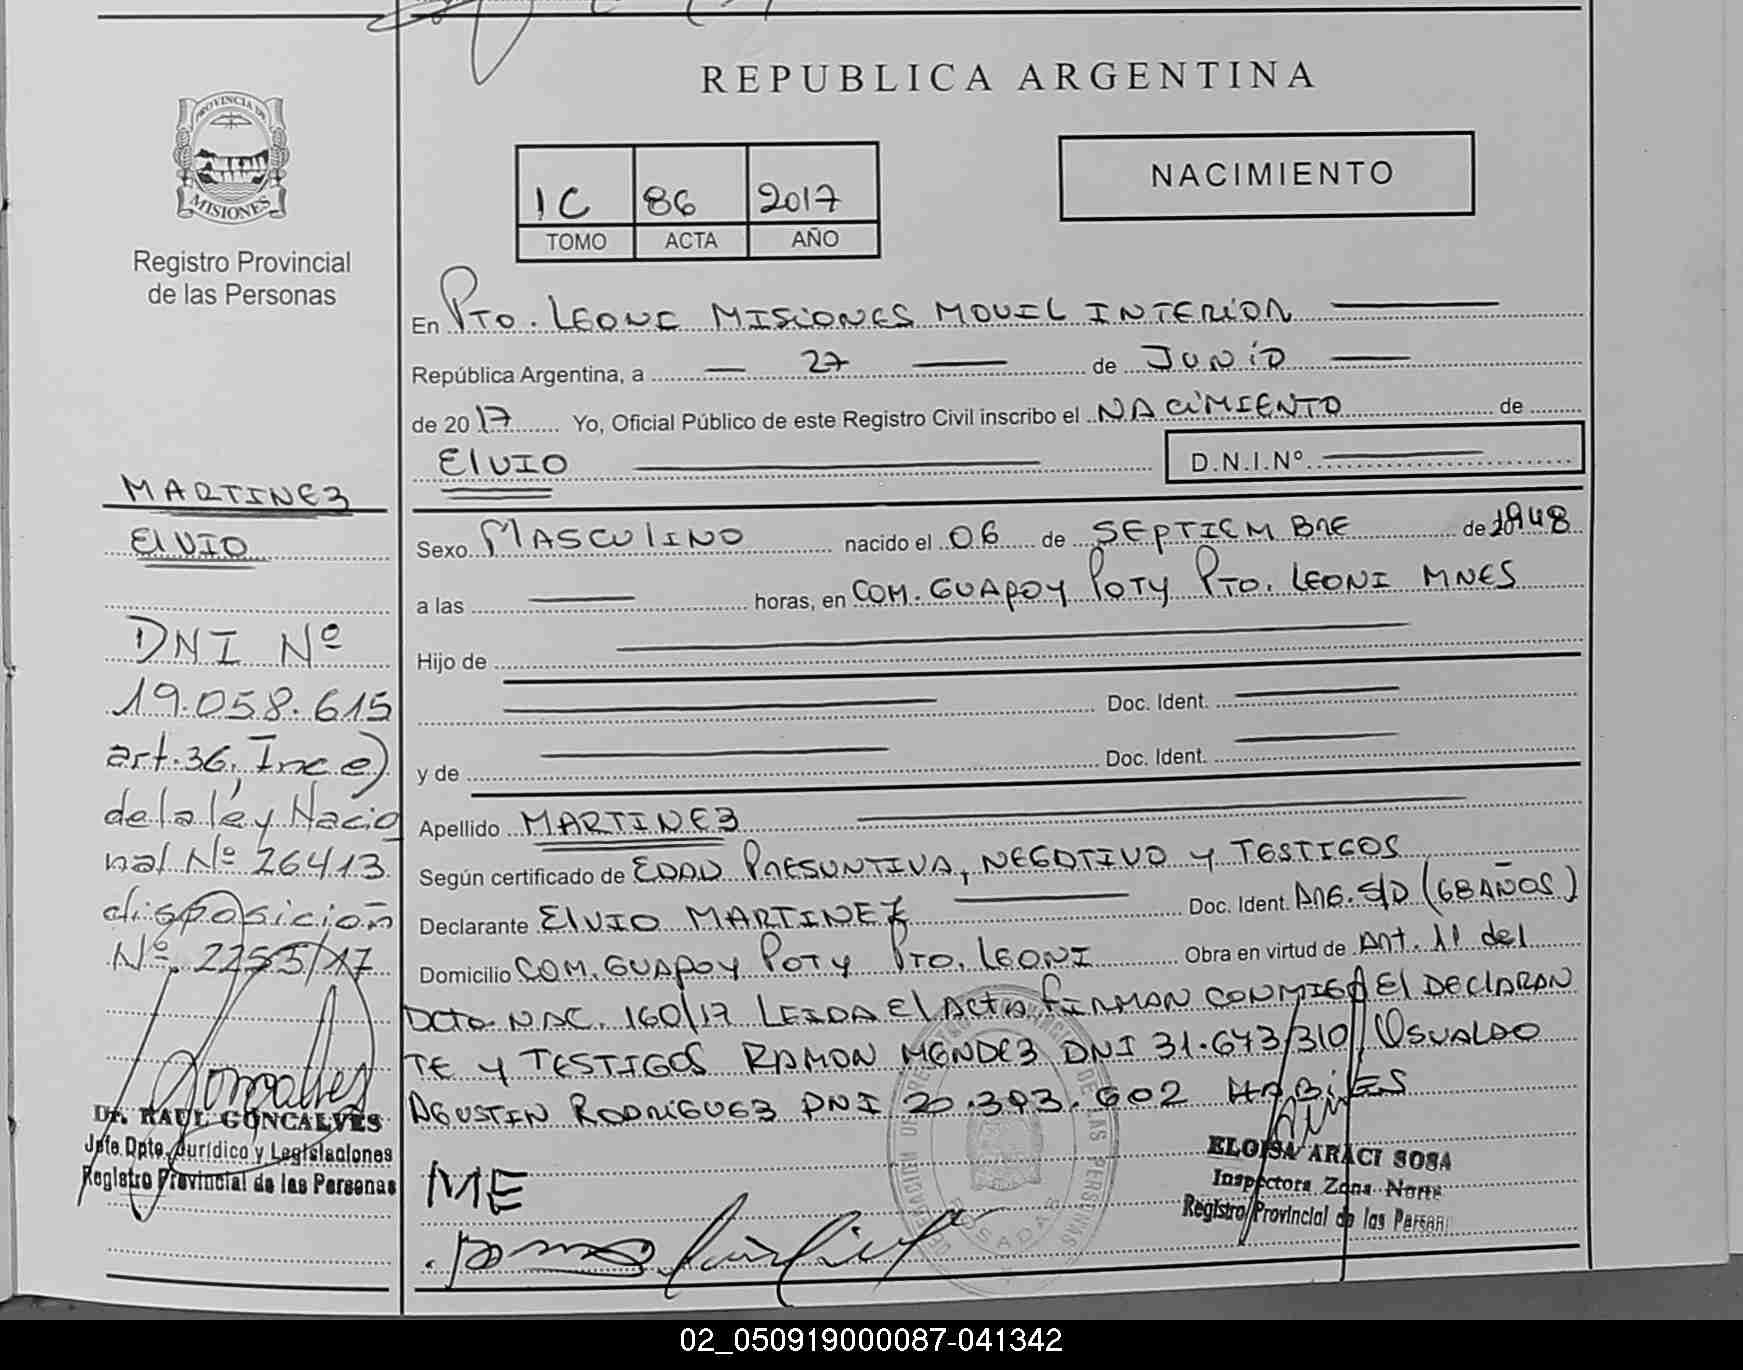 REPUBLICA ARGENTINA
PROVINCIA DE
MISIONES
Registro Provincial
de las Personas
1C 86 2017
TOMO ACTA AÑO
NACIMIENTO
En Pto. LEONI MISIONES MOVIL INTERIOR
República Argentina, a 27 de JUNIO
de 2017 Yo, Oficial Público de este Registro Civil inscribo el NACIMIENTO de
ElVIO D.N.I.Nº
Sexo MASCULINO nacido el 06 de SEPTIEMBRE de 1948
a las horas, en COM. GUAPOY POTY PTO. LEONI MNES
Hijo de
Doc. Ident.
y de Doc. Ident.
Apellido MARTINEZ
Según certificado de EDAD PRESUNTIVA, NEGATIVO y TESTIGOS
Declarante ElVIO MARTINEZ Doc. Ident. ARG. S/D (68 AÑOS)
Domicilio COM. GUAPOY POTY PTO. LEONI Obra en virtud de Art. 11 del
Dcto. NAC. 160/17 LEIDA El Acta FIRMAN CONMIGO El DEClARAN
TE y TESTIGOS RAMON MENDEZ DNI 31.673/310 OSVALDO
AGUSTIN RODRIGUEZ DNI 20.393.602 HABILES
ME
ELOISA ARACI SOSA
Inspectora Zona Norte
Registro Provincial de las Person
MARTINEZ
ElVIO
DNI Nº
19.058.615
art. 36, Inc e)
de la ley Nacio
nal Nº 26413
disposición
Nº 2255/17
Goncalves
Dr. RAUL GONCALVES
Jefe Dpto. Jurídico y Legislaciones
Registro Provincial de las Personas
02_050919000087-041342